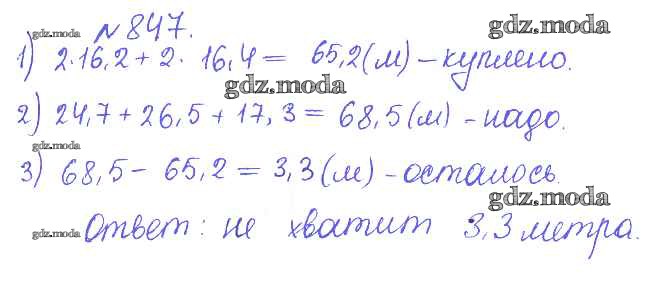 № 847.
gdz.moda
gdz.moda
1) 2·16,2 + 2· 16,4 = 65,2 (м) – куплено.
gdz.moda
2) 24,7 + 26,5 + 17,3 = 68,5 (м) – надо.
gdz.moda
3) 68,5 – 65,2 = 3,3 (м) – осталось.
gdz.moda
gdz.moda Ответ: не хватит 3,3 метра.